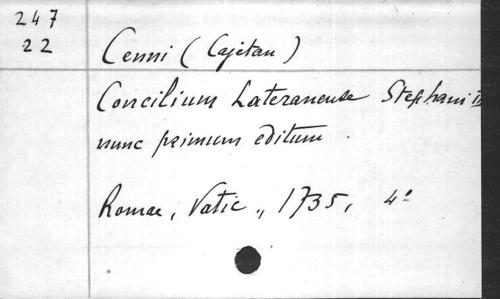 247
22
Cenni (Cajetan)
Concilium Lateranense Stephani
nunc primum editum.
Romae, Vatic., 1735, 4°